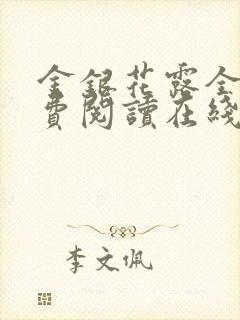 金銀花露全
費閱讀在綫
李文佩